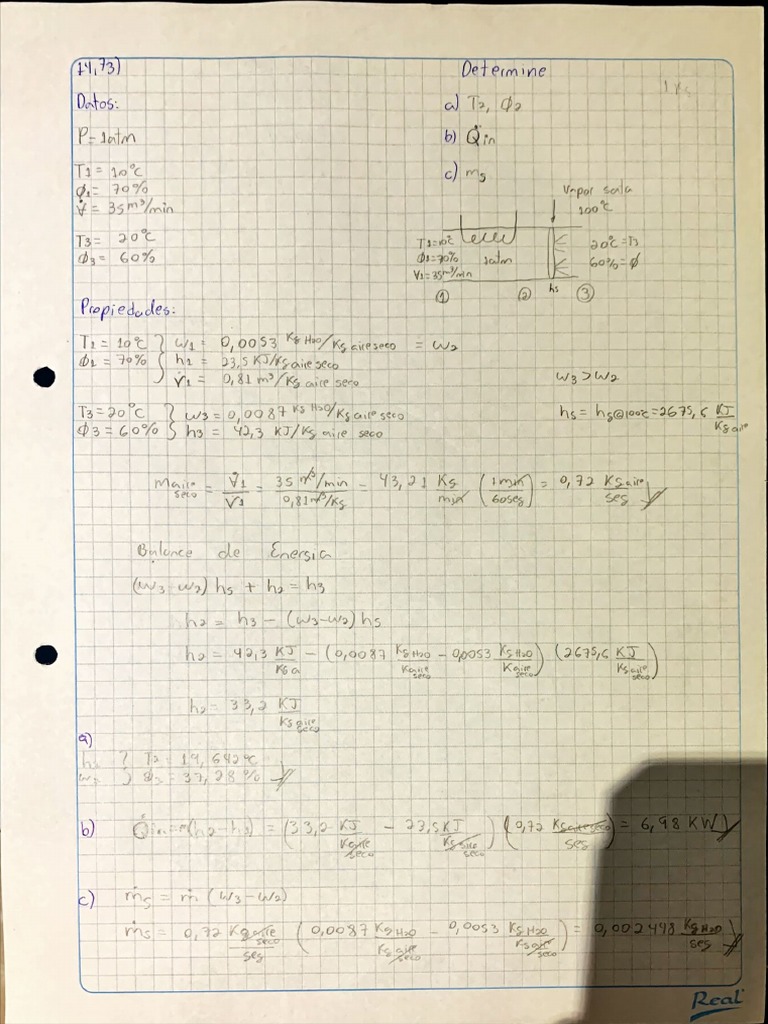 14,73)
Determine
Datos:
a) T2, Φ2
P= 1atm
b) Q̇in
T1= 10°C
c) ms
Φ1= 70%
V̇= 35m³/min
Vapor sala
100°C
T3= 20°C
Φ3= 60%
T1=10°C
Φ1=70%
V1=35m³/min
1atm
20°C=T3
60%=Φ
① ② hs ③
Propiedades:
T1= 10°C } ω1= 0,0053 Kg H2O/Kg aire seco = ω2
Φ1= 70% } h1= 23,5 KJ/Kg aire seco
v̇1= 0,81 m³/Kg aire seco
ω3>ω2
T3=20°C } ω3=0,0087 Kg H2O/Kg aire seco
Φ3=60% } h3= 42,3 KJ/Kg aire seco
hs= hg@100°C=2675,6 KJ/Kg aire
ṁaire seco = V̇1/V1 = 35 m³/min / 0,81m³/Kg = 43,21 Kg/min (1min/60seg) = 0,72 Kg aire/seg
Balance de Energia
(ω3-ω2) hs + h2 = h3
h2= h3 - (ω3-ω2) hs
h2= 42,3 KJ/Kga - (0,0087 Kg H2O/Kaire seco - 0,0053 Kg H2O/Kaire seco) (2675,6 KJ/Kg aire seco)
h2= 33,2 KJ/Kg aire seco
a)
h2 } T2= 19,642°C
ω2 } Φ2= 37,28%
b) Q̇in=ṁ(h2-h1) = (33,2 KJ/Kg aire seco - 23,5KJ/Kg aire seco) (0,72 Kg aire seco/seg) = 6,98 KW
c) ṁs= ṁ (ω3-ω2)
ṁs= 0,72 Kg aire seco/seg (0,0087 Kg H2O/Kg aire seco - 0,0053 Kg H2O/Kg aire seco) = 0,002448 Kg H2O/seg
Real